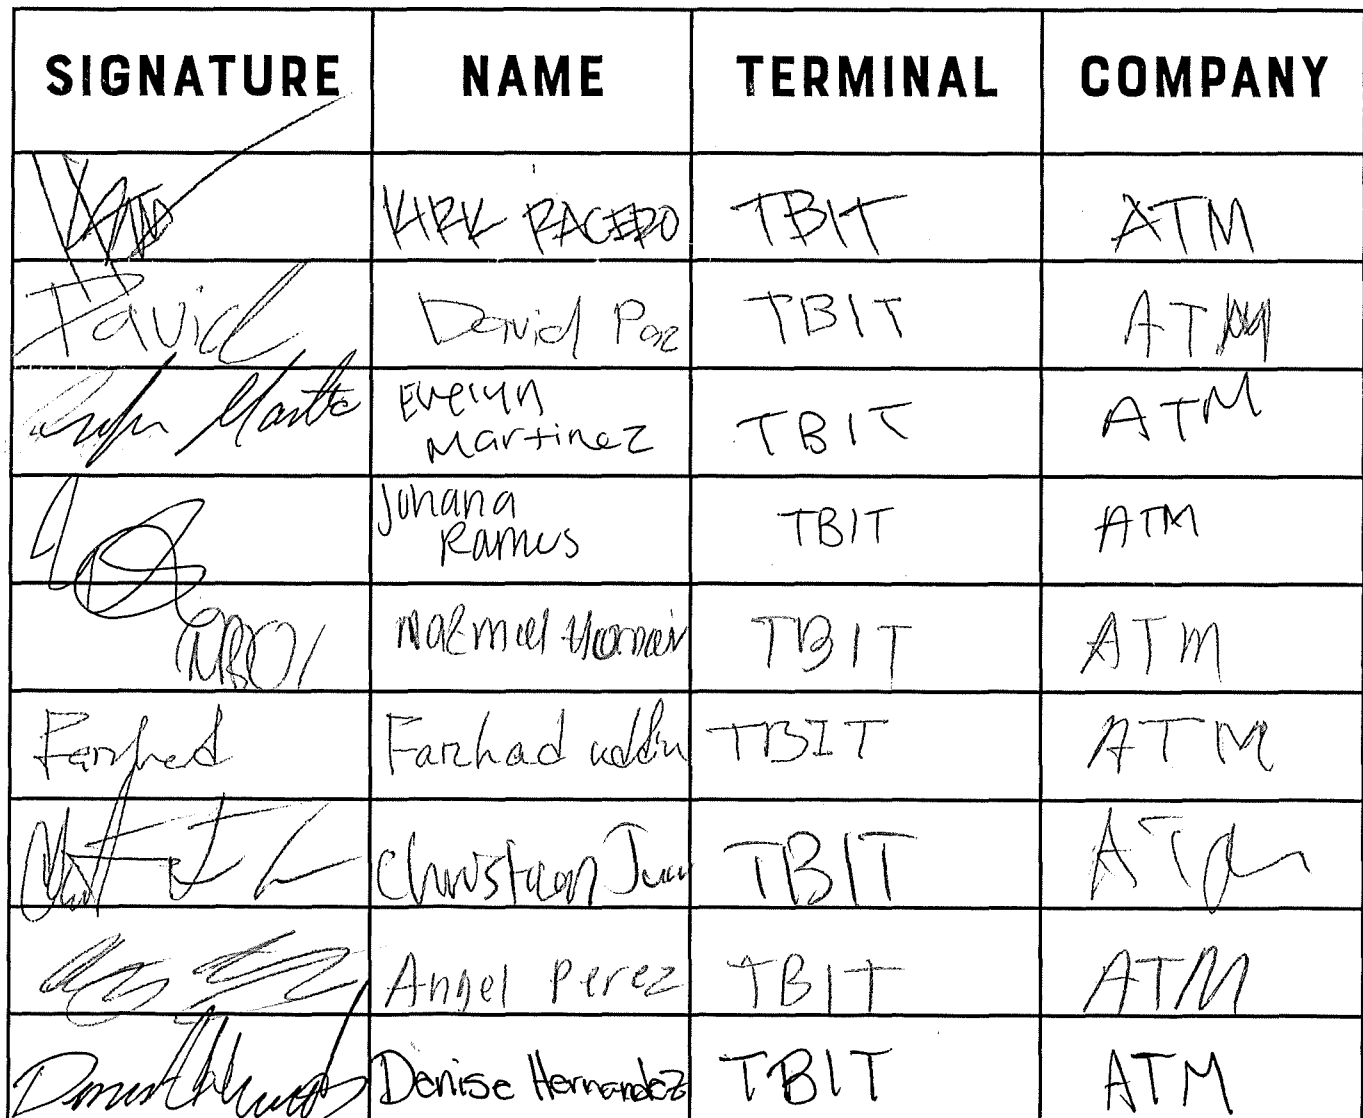 SIGNATURE NAME TERMINAL COMPANY
KIRK RACEDO TBIT ATM
David David Paz TBIT ATM
Evelyn
Martinez TBIT ATM
Johana
Ramos TBIT ATM
TBIT ATM
Farhad Farhad uddin TBIT ATM
Christian TBIT ATM
Angel Perez TBIT ATM
Denise Hernandez TBIT ATM